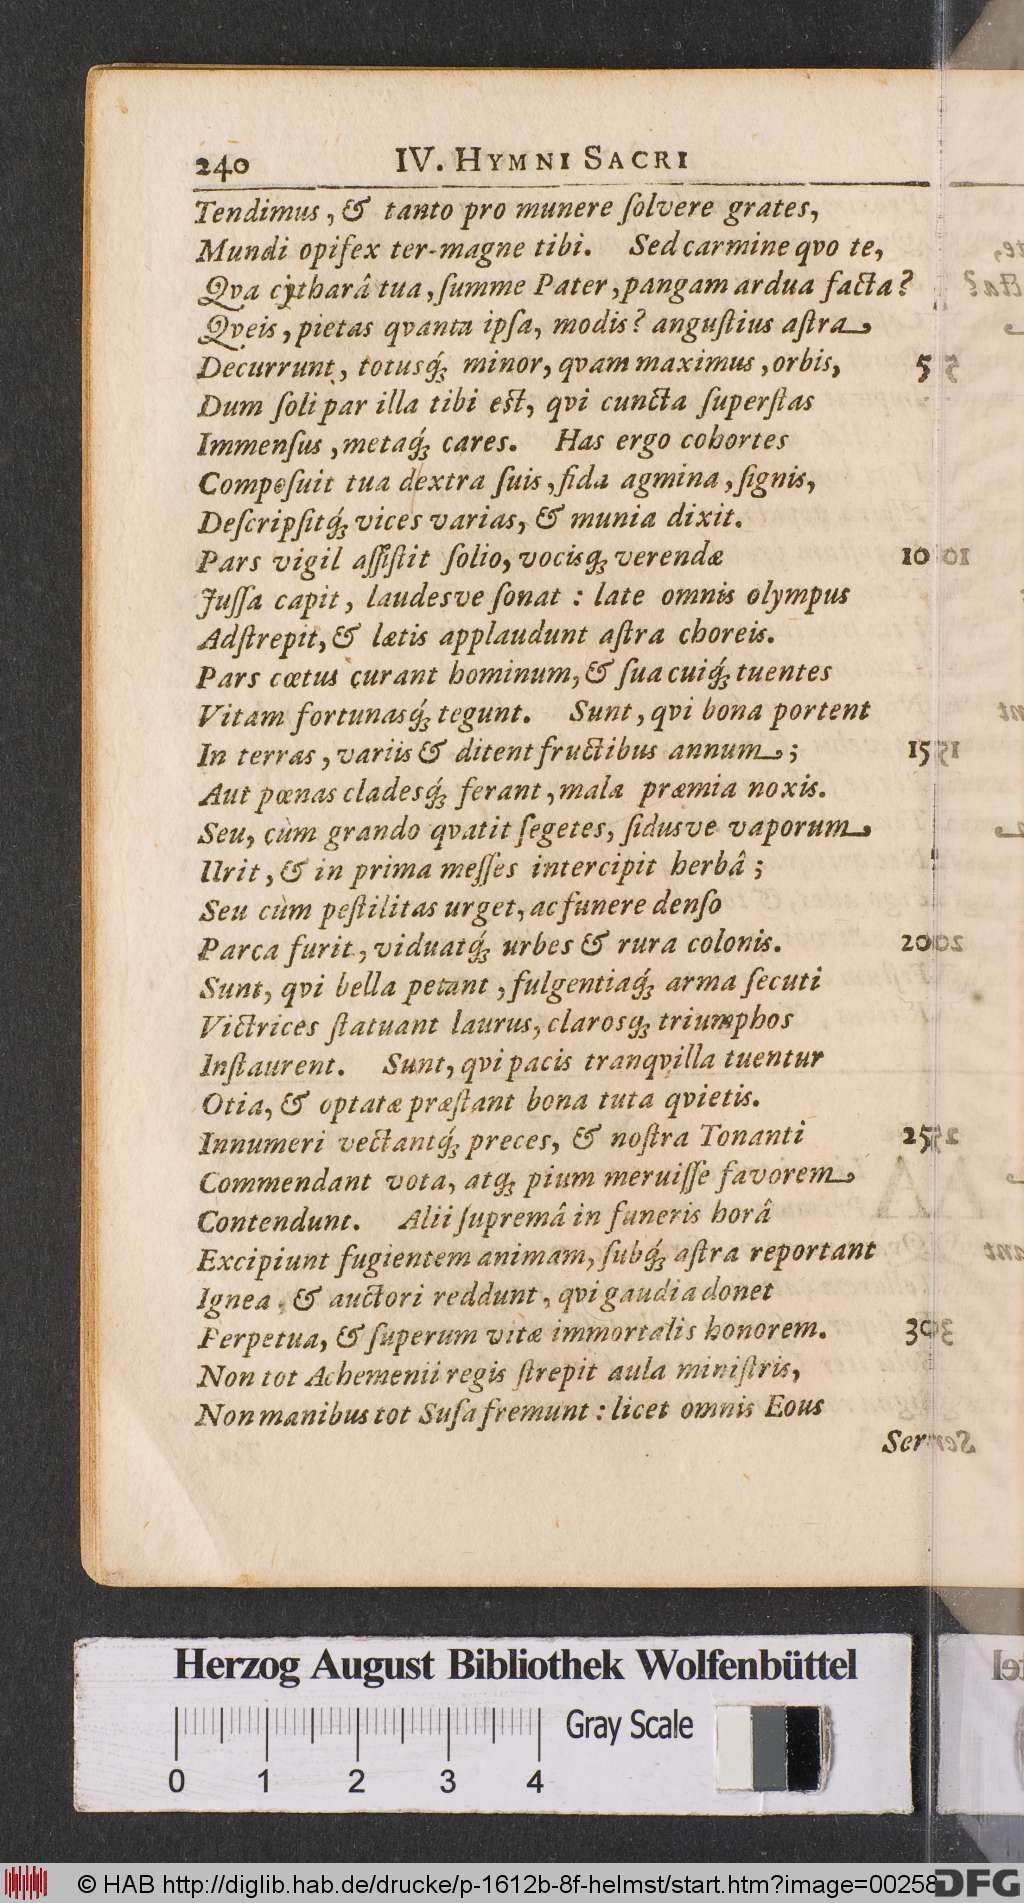 240 IV. HYMNI SACRI
Tendimus, & tanto pro munere ſolvere grates,
Mundi opifex ter-magne tibi. Sed carmine qvo te,
Qva cytharâ tua, ſumme Pater, pangam ardua facta?
Qveis, pietas qvanta ipſa, modis? anguſtius aſtra
Decurrunt, totusq́; minor, qvam maximus, orbis, 5
Dum ſoli par illa tibi eſt, qvi cuncta ſuperſtas
Immenſus, metaq́; cares. Has ergo cohortes
Compoſuit tua dextra ſuis, fida agmina, ſignis,
Deſcripſitq́; vices varias, & munia dixit.
Pars vigil aſſiſtit ſolio, vocisq; verendæ 10
Juſſa capit, laudesve ſonat : late omnis olympus
Adſtrepit, & lætis applaudunt aſtra choreis.
Pars cœtus curant hominum, & ſua cuiq́; tuentes
Vitam fortunasq́; tegunt. Sunt, qvi bona portent
In terras, variis & ditent fructibus annum; 15
Aut pœnas cladesq́; ferant, mala præmia noxis.
Seu, cùm grando qvatit ſegetes, ſidusve vaporum
Urit, & in prima meſſes intercipit herbâ;
Seu cùm peſtilitas urget, ac funere denſo
Parca furit, viduatq́; urbes & rura colonis. 20
Sunt, qvi bella petant, fulgentiaq́; arma ſecuti
Victrices ſtatuant laurus, clarosq; triumphos
Inſtaurent. Sunt, qvi pacis tranqvilla tuentur
Otia, & optatæ præſtant bona tuta qvietis.
Innumeri vectantq́; preces, & noſtra Tonanti 25
Commendant vota, atq; pium meruiſſe favorem
Contendunt. Alii ſupremâ in funeris horâ
Excipiunt fugientem animam, ſubq́; aſtra reportant
Ignea, & auctori reddunt, qvi gaudia donet
Perpetua, & ſuperum vitæ immortalis honorem. 30
Non tot Achemenii regis ſtrepit aula miniſtris,
Non manibus tot Suſa fremunt : licet omnis Eous
Ser
Herzog August Bibliothek Wolfenbüttel
Gray Scale
0 1 2 3 4
© HAB http://diglib.hab.de/drucke/p-1612b-8f-helmst/start.htm?image=00258
DFG